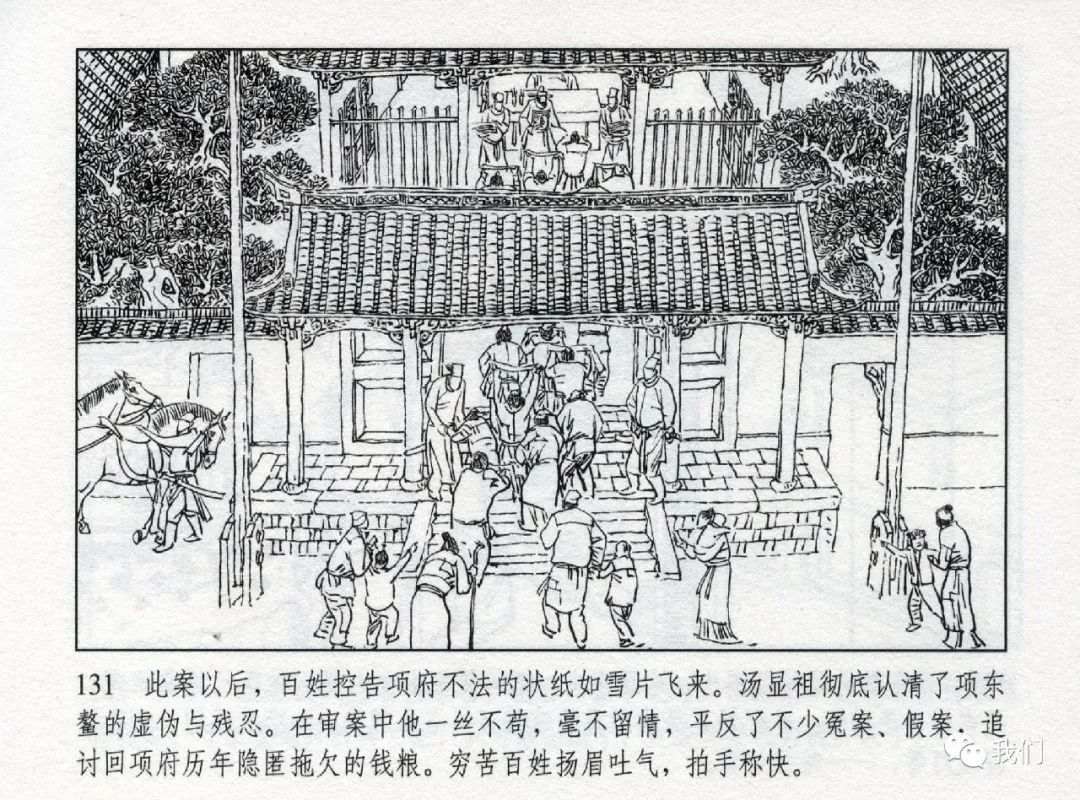 131 此案以后，百姓控告项府不法的状纸如雪片飞来。汤显祖彻底认清了项东
鳌的虚伪与残忍。在审案中他一丝不苟，毫不留情，平反了不少冤案、假案，追
讨回项府历年隐匿拖欠的钱粮。穷苦百姓扬眉吐气，拍手称快。
我们